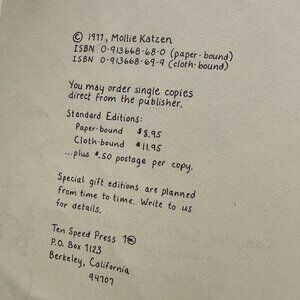 © 1977, Mollie Katzen
ISBN 0-913668-68-0 (paper-bound)
ISBN 0-913668-69-9 (cloth-bound)
You may order single copies
direct from the publisher.
Standard Editions:
Paper-bound $8.95
Cloth-bound $11.95
...plus $.50 postage per copy.
Special gift editions are planned
from time to time. Write to us
for details.
Ten Speed Press
P.O. Box 7123
Berkeley, California
94707